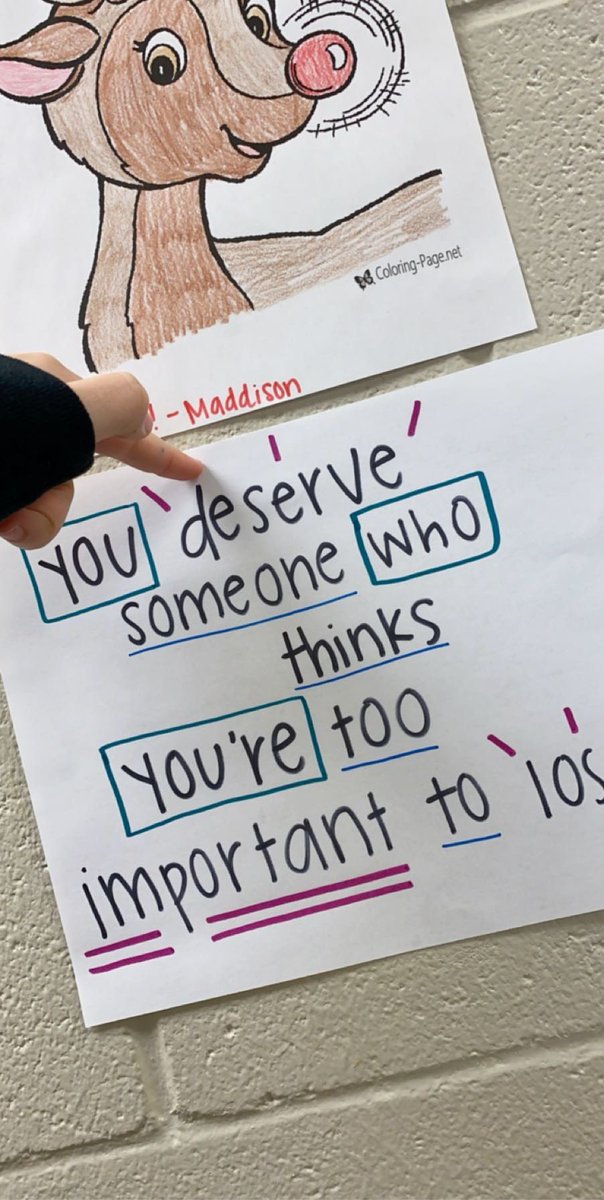 Coloring-Page.net
! - Maddison
you deserve
someone who
thinks
you're too
important to los